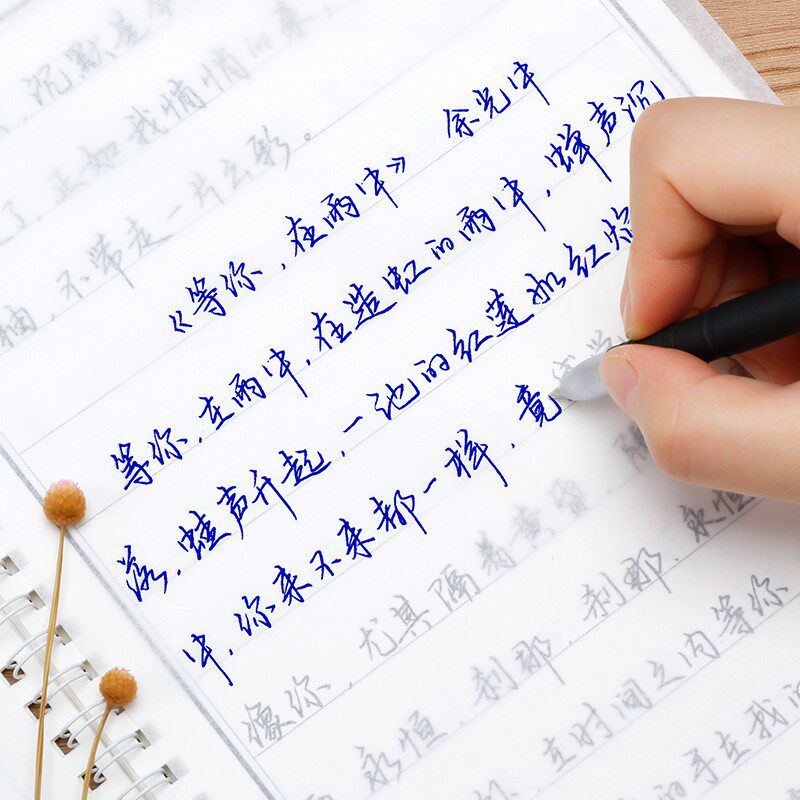 ，沉默是
了，正如我悄悄的来，
袖，不带走一片云彩。
《等你，在雨中》 余光中
等你，在雨中，在造虹的雨中，蝉声沉
落，蛙声升起，一池的红莲如红焰
中，你来不来都一样，竟
像你，尤其隔着黄昏，隔
永恒，刹那，刹那，永恒
在时间之内等你
的手在我的